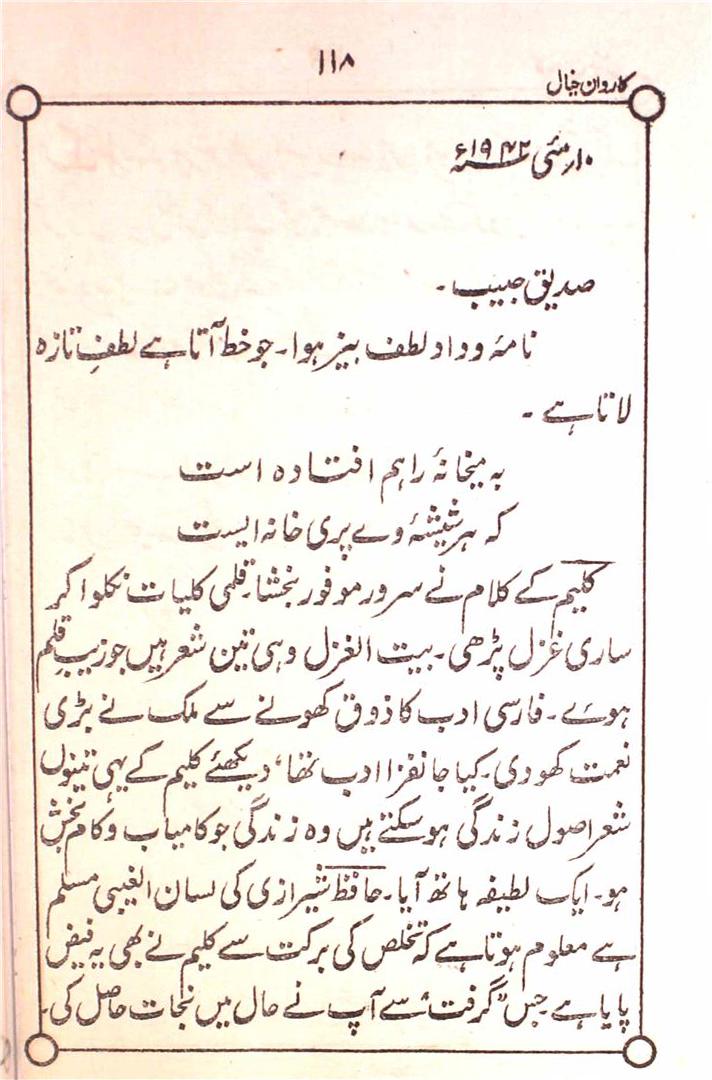 ۱۱۸
کاروان خیال
۱۰ر مئی ۱۹۴۲ء
صدیق حبیب۔
نامۂ وداد لطف بیز ہوا۔ جو خط آتا ہے لطفِ تازہ
لاتا ہے۔
بہ میخانۂ راہم افتادہ است
کہ ہر شیشۂ وے پری خانہ ایست
کلیم کے کلام نے سرور موفور بخشا۔ قلمی کلیات نکلوا کر
ساری غزل پڑھی۔ بیت الغزل وہی تین شعر ہیں جو زیبِ قلم
ہوے۔ فارسی ادب کا ذوق کھونے سے ملک نے بڑی
نعمت کھودی۔ کیا جانفزا ادب تھا، دیکھئے کلیم کے یہی تینوں
شعر اصول زندگی ہوسکتے ہیں وہ زندگی جو کامیاب و کام بخش
ہو۔ ایک لطیفہ ہاتھ آیا۔ حافظ شیرازی کی لسان الغیبی مسلم
ہے معلوم ہوتا ہے کہ تخلص کی برکت سے کلیم نے بھی یہ فیض
پایا ہے جس "گرفت" سے آپ نے حال میں نجات حاصل کی۔